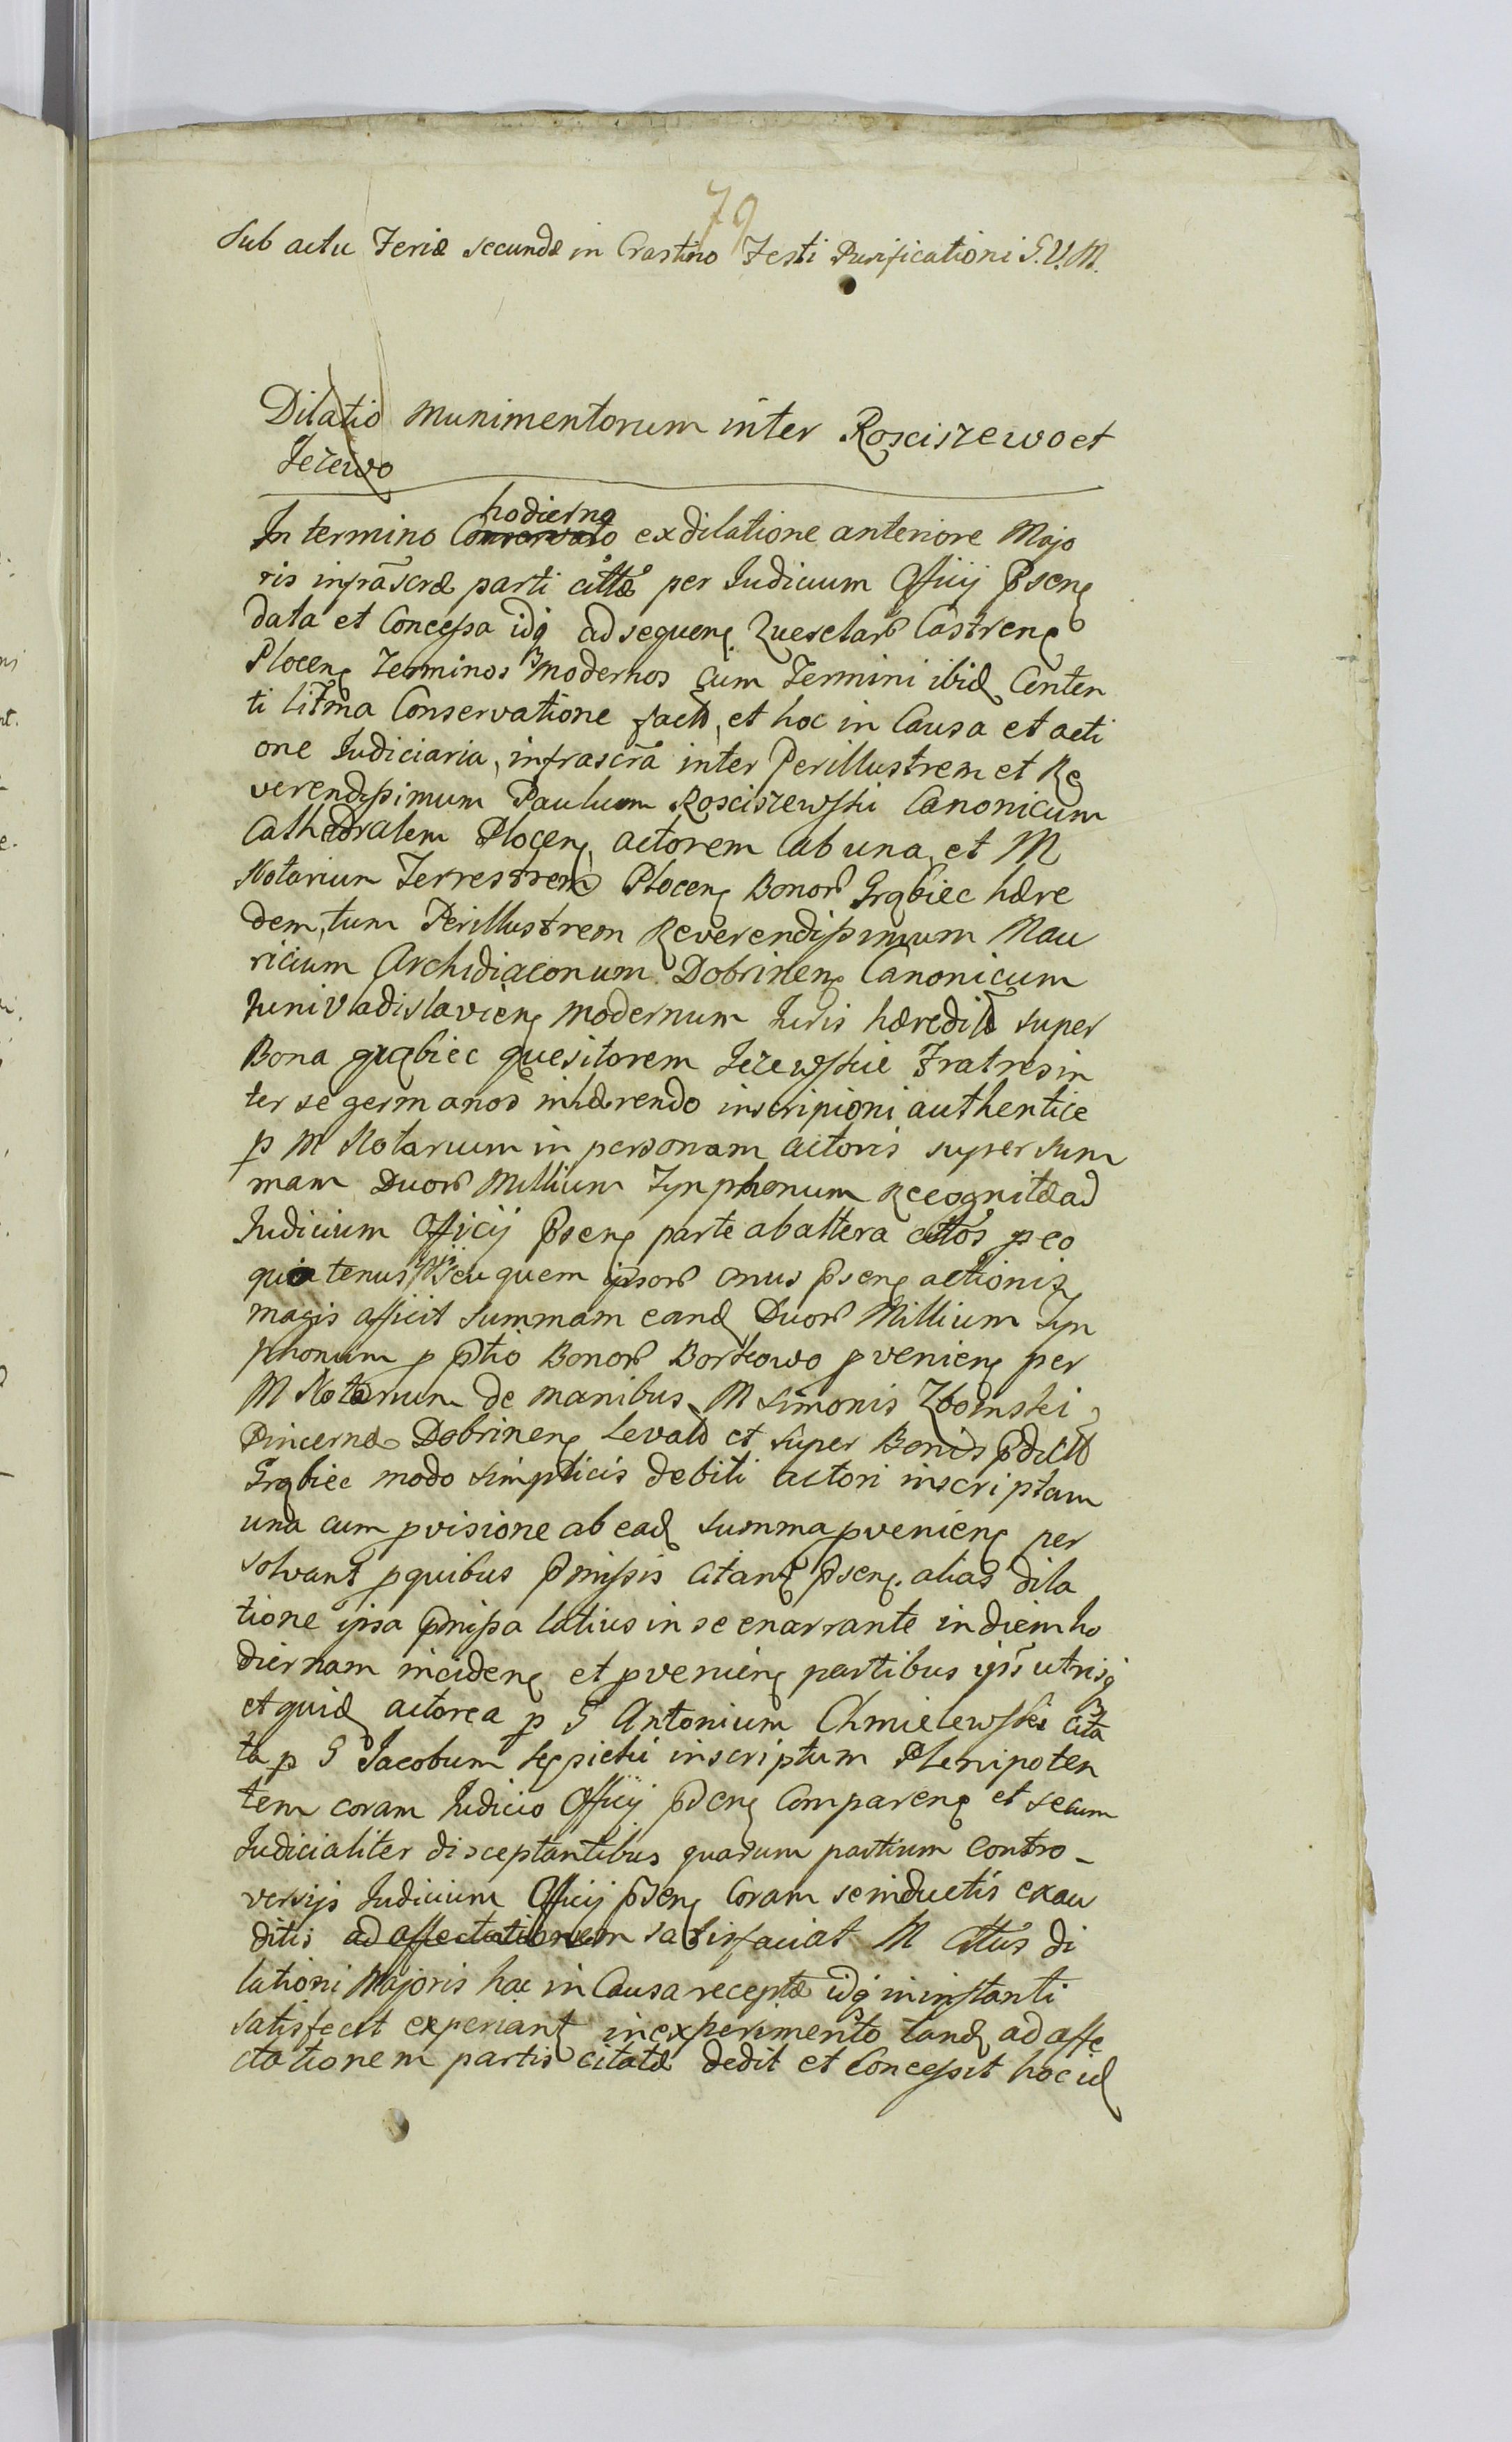 79
Sub actu Feriæ secundæ in Crastino Festi Purificationi S.V.M.
Dilatio Munimentorum inter Rosciszewo et
Jezewo
hodierno
In termino Conservato ex dilatione anteriore Majo
ris infrascræ parti cittæ per Judicium Officij Pseng
data et Concessa idq ad sequeng Querelar Castreng
Ploceng Terminos modernos cum Termini ibid Conten
ti litma Conservatione facto, et hoc in Causa et acti
one Judiciaria, infrascra inter Perillustrem et Re
verendissimum Paulum Rosciszewski Canonicum
Cathedralem Ploceng actorem ab una, et M
Notarium Terrestrem Ploceng Bonor Grąbiec hære
dem, tum Perillustrem Reverendissimum Mau
ricium Archidiaconum Dobrineng Canonicum
Junivladislavieng modernum Juris hæredit super
Bona grąbiec quesitorem Jezewskie Fratres in
ter se germanos inhærendo inscripioni authentice
p M Notarium in personam actoris super Sum
mam Duor Millium Tynphonum Recognitæ ad
Judicium Officij Pseng parte ab altera cittos p eo
quatenus ipsi seu quem ipsor onus pseng actionis
magis afficit Summam eand Duor Millium Tyn
phonum p ptio Bonor Borkowo pvenieng per
M Notarium de manibus M Simonis Zboinski
Pincernæ Dobrineng Levato et super Bonis pdicto
Grąbiec modo simplicis debiti actori inscriptam
una cum pvisione ab ead Summa pvenieng per
solvant p quibus pmissis citant pseng alias dila
tione ipsa pmissa latius in se enarrante in diem ho
diernam incideng et pvenieng partibus ipis utrisq
et quid actorea p G Antonium Chmielewski cita
ta p G Jacobum Sępicki inscriptum Plenipoten
tem coram Judicio Officij pseng Compareng et secum
Judicialiter disceptantibus quarum partium Contro-
versijs Judicium Officij pseng Coram se inductis exau
ditis ad affectationem satisfaciat M cittus di
lationi Majoris hac in Causa receptæ idq in instanti
satisfecit experiant in experimento tand ad affe
ctationem partis citatæ dedit et Concessit hoc id